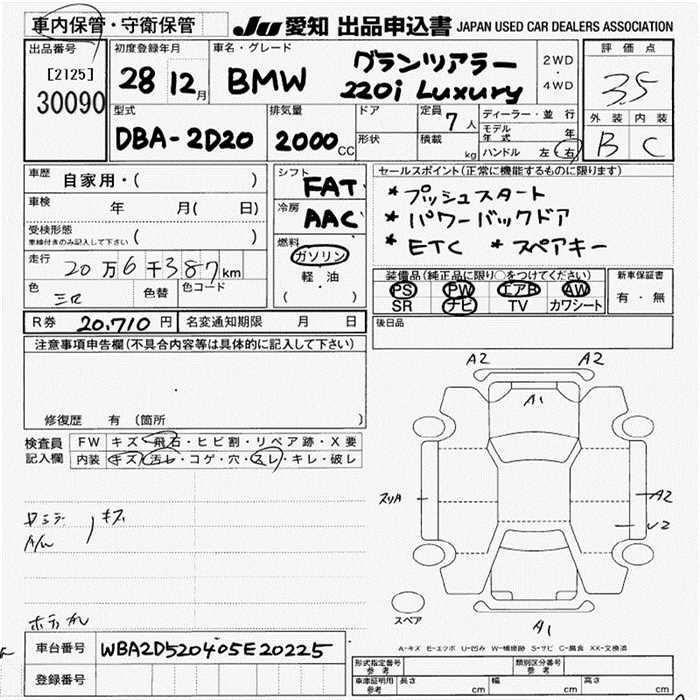 車内保管・守衛保管
JU 愛知 出品申込書 JAPAN USED CAR DEALERS ASSOCIATION
出品番号
[2125]
30090
初度登録年月
28 12月
車名・グレード
BMW グランツアラー
220i Luxury
2WD
・
4WD
評価点
3.5
外装 内装
B C
型式
DBA-2D20
排気量
2000cc
ドア
形状
定員
7人
積載
kg
ディーラー・並行
モデル年式 年
ハンドル 左・右
車歴 自家用・( )
車検 年 月( 日)
受検形態
車検付きのみ記入して下さい ( )
走行 20万6千387km
色 色替 色コード
シフト
FAT
冷房
AAC
燃料
ガソリン
軽・油
( )
セールスポイント(正常に機能するものに限ります)
* プッシュスタート
* パワーバックドア
* ETC * スペアキー
装備品(純正品に限り○をつけてください)
PS PW エアB AW
SR ナビ TV カワシート
新車保証書
有・無
R券 20,710円 名変通知期限 月 日
後日品
注意事項申告欄(不具合内容等は具体的に記入して下さい)
修復歴 有 (箇所 )
検査員記入欄
FW キズ・飛石・ヒビ割・リペア跡・X要
内装 キズ・汚レ・コゲ・穴・スレ・キレ・破レ
キズ
A2 A2
A1
スリA
A2
A1
スペア
A-キズ E-エクボ U-凹み W-補修跡 S-サビ C-腐食 XX-交換済
車台番号 WBA2D520405E20225
登録番号
形式指定番号 参考
類別区分番号 参考
車庫証明用 参考 長さ cm 幅 cm 高さ cm